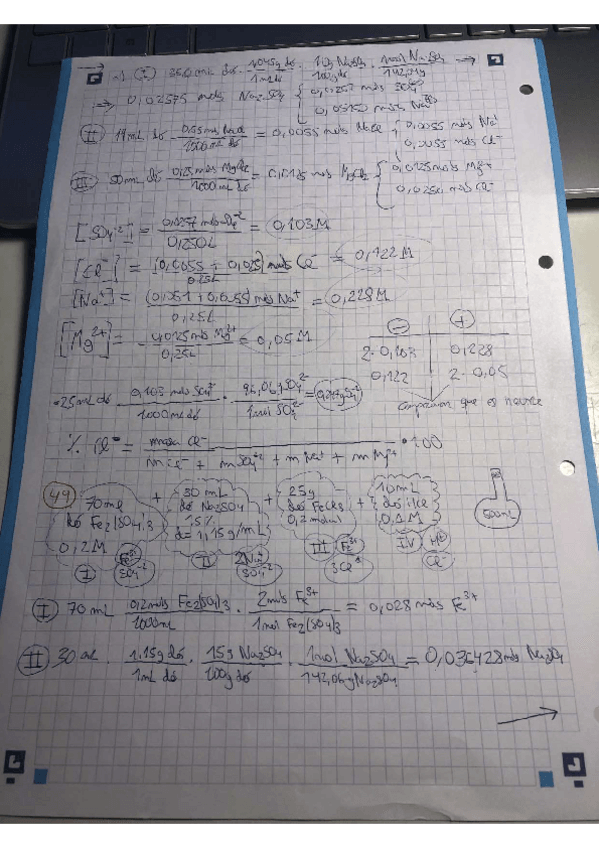 35,0 mL dó · 1,045g dó / 1mL dó · 10g Na2SO4 / 100g dó · 1mol Na2SO4 / 142,04g
→ 0,02575 mols Na2SO4 { 0,0257 mols SO4 2-
0,05150 mols Na+
II 11mL dó 0,5 mols NaCl / 1000mL dó = 0,0055 mols NaCl { 0,0055 mols Na+
0,0055 mols Cl-
III 50mL dó 0,25 mols MgCl2 / 1000mL dó = 0,0125 mols MgCl2 { 0,0125 mols Mg2+
0,0250 mols Cl-
[SO4 -2] = 0,0257 mols SO4 -2 / 0,250L = 0,103M
[Cl-] = (0,0055 + 0,025) mols Cl- / 0,25L = 0,122M
[Na+] = (0,051 + 0,0055) mols Na+ / 0,25L = 0,228M
[Mg2+] = 0,0125 mols Mg2+ / 0,25L = 0,05M
- +
2·0,103 0,228
0,122 2·0,05
que es neutre
·25mL dó 0,103 mols SO4 2- / 1000mL dó · 96,06g SO4 2- / 1mol SO4 2- =
% Cl- = massa Cl- / m Cl- + m SO4 -2 + m Na+ + m Mg2+ · 100
49 70mL dó Fe2(SO4)3 0,2M + 30mL dó Na2SO4 15% d=1,15g/mL + 25g dó FeCl3 0,2molal + 10mL dó HCl 0,1M 500mL
I Fe3+ SO4 -2 II 2Na+ SO4 -2 III Fe3+ 3Cl- IV H+ Cl-
I 70mL 0,2mols Fe2(SO4)3 / 1000mL · 2mols Fe3+ / 1mol Fe2(SO4)3 = 0,028 mols Fe3+
II 30mL · 1.15g dó / 1mL dó · 15g Na2SO4 / 100g dó · 1mol Na2SO4 / 142,06g Na2SO4 = 0,036428 mols Na2SO4